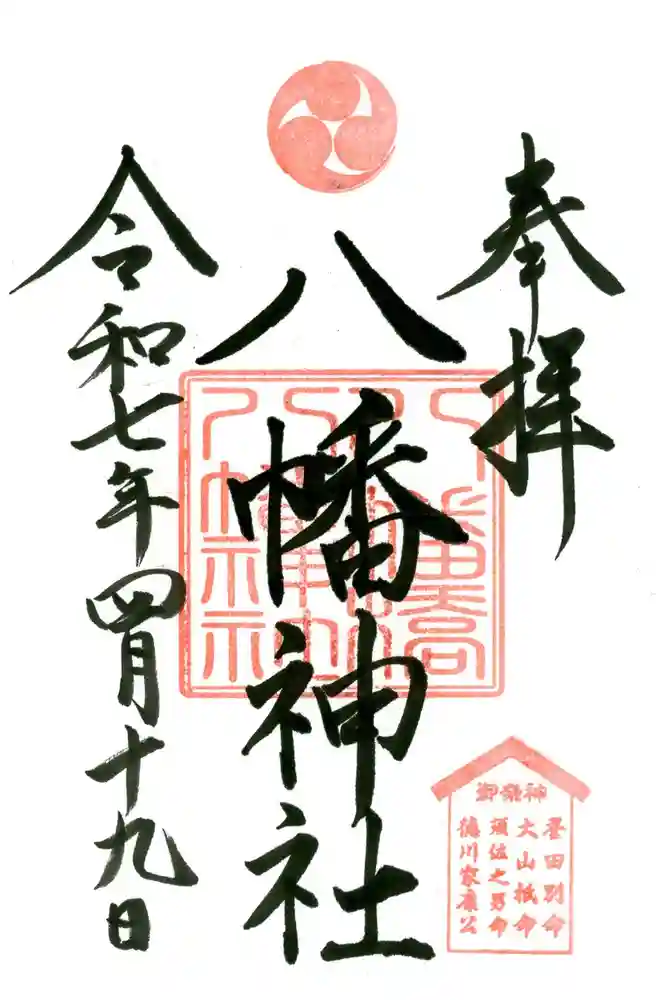 奉拝
八幡神社
令和七年四月十九日
御祭神
誉田別命
大山祇命
須佐之男命
徳川家康公